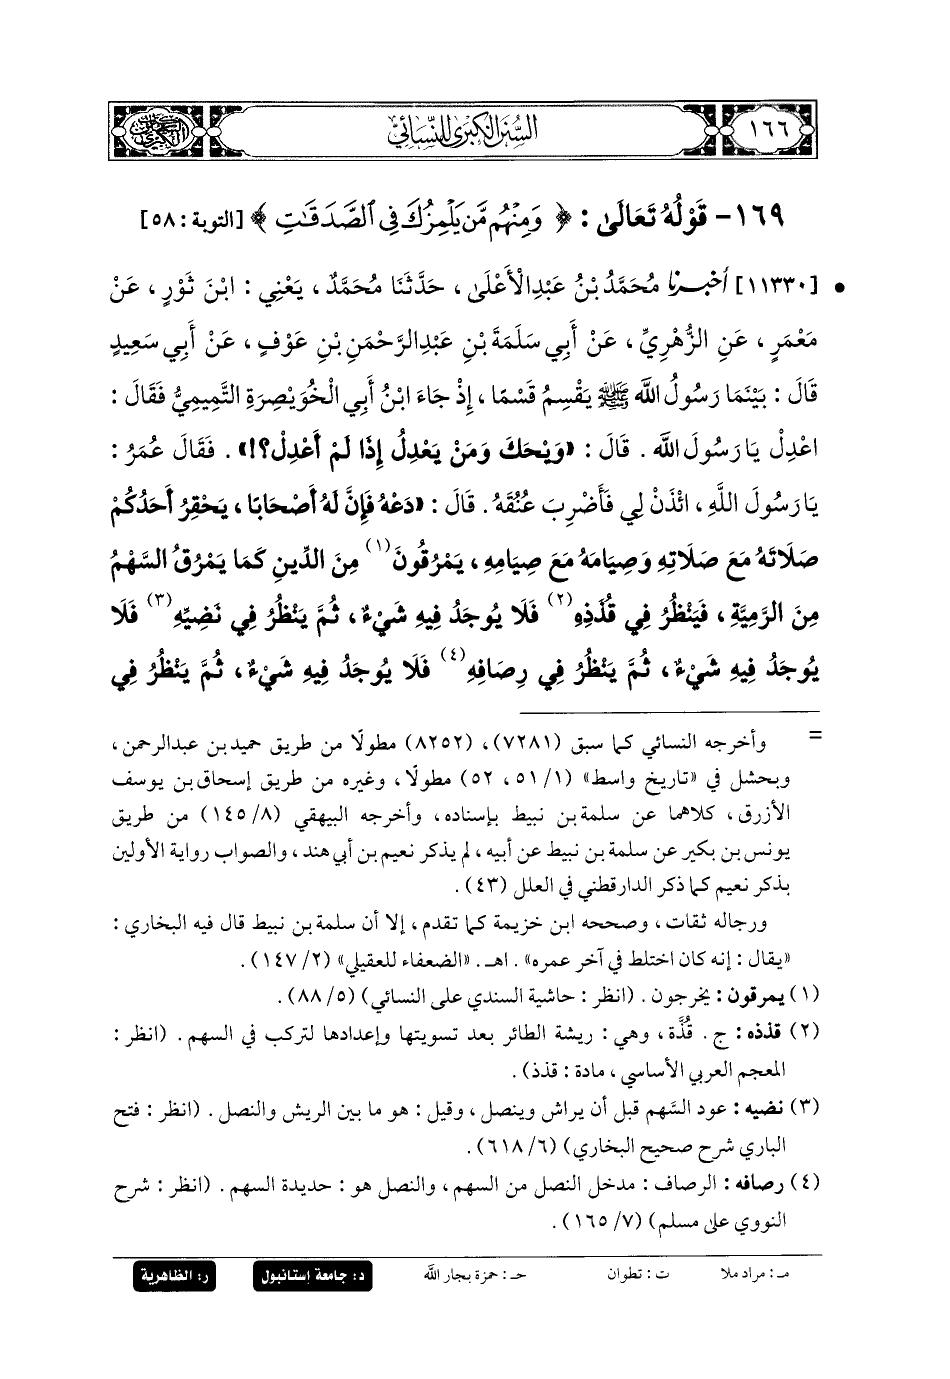 السنن الكبرى للنسائي
١٦٦
١٦٩- قَوْلُهُ تَعَالَىٰ : ﴿ وَمِنْهُم مَّن يَلْمِزُكَ فِي ٱلصَّدَقَٰتِ ﴾ [التوبة : ٥٨]
• [١١٣٣٠] أخبرنا مُحَمَّدُ بْنُ عَبْدِ الْأَعْلَى ، حَدَّثَنَا مُحَمَّدٌ ، يَعْنِي : ابْنَ ثَوْرٍ ، عَنْ
مَعْمَرٍ ، عَنِ الزُّهْرِيِّ ، عَنْ أَبِي سَلَمَةَ بْنِ عَبْدِ الرَّحْمَنِ بْنِ عَوْفٍ ، عَنْ أَبِي سَعِيدٍ
قَالَ : بَيْنَمَا رَسُولُ اللَّهِ ﷺ يَقْسِمُ قَسْمًا ، إِذْ جَاءَ ابْنُ أَبِي الْخُوَيْصِرَةِ التَّمِيمِيُّ فَقَالَ :
اعْدِلْ يَا رَسُولَ اللَّهِ . قَالَ : «وَيْحَكَ وَمَنْ يَعْدِلُ إِذَا لَمْ أَعْدِلْ؟!» . فَقَالَ عُمَرُ :
يَا رَسُولَ اللَّهِ ، ائْذَنْ لِي فَأَضْرِبَ عُنُقَهُ . قَالَ : «دَعْهُ فَإِنَّ لَهُ أَصْحَابًا ، يَحْقِرُ أَحَدُكُمْ
صَلَاتَهُ مَعَ صَلَاتِهِ وَصِيَامَهُ مَعَ صِيَامِهِ ، يَمْرُقُونَ(١) مِنَ الدِّينِ كَمَا يَمْرُقُ السَّهْمُ
مِنَ الرَّمِيَّةِ ، فَيَنْظُرُ فِي قُذَذِهِ(٢) فَلَا يُوجَدُ فِيهِ شَيْءٌ ، ثُمَّ يَنْظُرُ فِي نَضِيِّهِ(٣) فَلَا
يُوجَدُ فِيهِ شَيْءٌ ، ثُمَّ يَنْظُرُ فِي رِصَافِهِ(٤) فَلَا يُوجَدُ فِيهِ شَيْءٌ ، ثُمَّ يَنْظُرُ فِي
= وأخرجه النسائي كما سبق (٧٢٨١)، (٨٢٥٢) مطولًا من طريق حميد بن عبدالرحمن ،
وبحشل في «تاريخ واسط» (١/ ٥١ ، ٥٢) مطولًا ، وغيره من طريق إسحاق بن يوسف
الأزرق ، كلاهما عن سلمة بن نبيط بإسناده، وأخرجه البيهقي (٨/ ١٤٥) من طريق
يونس بن بكير عن سلمة بن نبيط عن أبيه ، لم يذكر نعيم بن أبي هند ، والصواب رواية الأولين
بذكر نعيم كما ذكر الدارقطني في العلل (٤٣) .
ورجاله ثقات ، وصححه ابن خزيمة كما تقدم ، إلا أن سلمة بن نبيط قال فيه البخاري :
«يقال : إنه كان اختلط في آخر عمره» . اهـ . «الضعفاء للعقيلي» (٢/ ١٤٧) .
(١) يمرقون : يخرجون . (انظر : حاشية السندي على النسائي) (٥/ ٨٨) .
(٢) قذذه : ج . قُذَّة ، وهي : ريشة الطائر بعد تسويتها وإعدادها لتركب في السهم . (انظر :
المعجم العربي الأساسي ، مادة : قذذ) .
(٣) نضيه : عود السَّهم قبل أن يراش وينصل ، وقيل : هو ما بين الريش والنصل . (انظر : فتح
الباري شرح صحيح البخاري) (٦/ ٦١٨) .
(٤) رصافه : الرصاف : مدخل النصل من السهم ، والنصل هو : حديدة السهم . (انظر : شرح
النووي على مسلم) (٧/ ١٦٥) .
مـ : مراد ملا ت : تطوان حـ : حمزة بجار الله د: جامعة إستانبول ر: الظاهرية